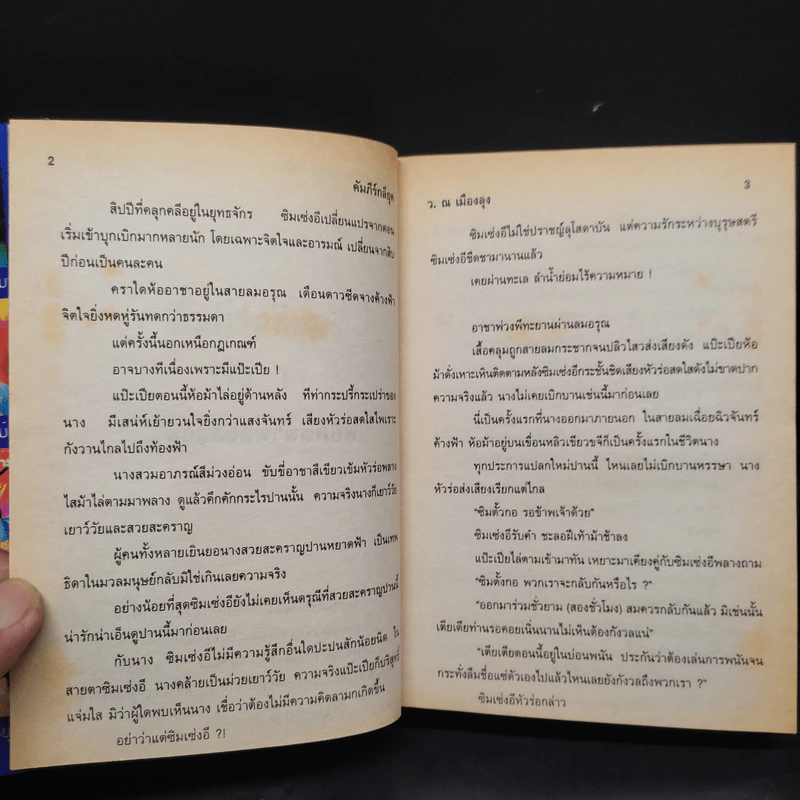 2
คัมภีร์กลียุค
สิบปีที่คลุกคลีอยู่ในยุทธจักร ซิมเซ่งอีเปลี่ยนแปรจากตอน
เริ่มเข้าบุกเบิกมากหลายนัก โดยเฉพาะจิตใจและอารมณ์ เปลี่ยนจากสิบ
ปีก่อนเป็นคนละคน
คราใดห้ออาชาอยู่ในสายลมอรุณ เดือนดาวซีดจางค้างฟ้า
จิตใจยิ่งหดหู่รันทดกว่าธรรมดา
แต่ครั้งนี้นอกเหนือกฎเกณฑ์
อาจบางทีเนื่องเพราะมีแป๊ะเปีย !
แป๊ะเปียตอนนี้ห้อม้าไล่อยู่ด้านหลัง ทีท่ากระปรี้กระเปร่าของ
นาง มีเสน่ห์เย้ายวนใจยิ่งกว่าแสงจันทร์ เสียงหัวร่อสดใสไพเราะ
กังวานไกลไปถึงท้องฟ้า
นางสวมอาภรณ์สีม่วงอ่อน ขับขี่อาชาสีเขียวเข้มหัวร่อพลาง
ไสม้าไล่ตามมาพลาง ดูแล้วคึกคักกระไรปานนั้น ความจริงนางก็เยาว์วัย
เยาว์วัยและสวยสะคราญ
ผู้คนทั้งหลายเยินยอนางสวยสะคราญปานหยาดฟ้า เป็นเทพ
ธิดาในมวลมนุษย์กลับมิใช่เกินเลยความจริง
อย่างน้อยที่สุดซิมเซ่งอียังไม่เคยเห็นดรุณีที่สวยสะคราญนี้
น่ารักน่าเอ็นดูปานนี้มาก่อนเลย
กับนาง ซิมเซ่งอีไม่มีความรู้สึกอื่นใดปะปนสักน้อยนิด ใน
สายตาซิมเซ่งอี นางคล้ายเป็นม่วยเยาว์วัย ความจริงแป๊ะเปียก็บริสุทธิ์
แจ่มใส มิว่าผู้ใดพบเห็นนาง เชื่อว่าต้องไม่มีความคิดลามกเกิดขึ้น
อย่าว่าแต่ซิมเซ่งอี ?!
ว. ณ เมืองลุง
3
ซิมเซ่งอีไม่ใช่ปราชญ์ลุโสดาบัน แต่ความรักระหว่างบุรุษสตรี
ซิมเซ่งอีชืดชามานานแล้ว
เคยผ่านทะเล ลำน้ำย่อมไร้ความหมาย !
อาชาพ่วงพีทะยานผ่านลมอรุณ
เสื้อคลุมถูกสายลมกระชากจนปลิวไสวส่งเสียงดัง แป๊ะเปียห้อ
ม้าดั่งเหาะเหินติดตามหลังซิมเซ่งอีกระชั้นชิดเสียงหัวร่อสดใสดังไม่ขาดปาก
ความจริงแล้ว นางไม่เคยเบิกบานเช่นนี้มาก่อนเลย
นี่เป็นครั้งแรกที่นางออกมาภายนอก ในสายลมเฉื่อยฉิวจันทร์
ค้างฟ้า ห้อม้าอยู่บนเขื่อนหลิวเขียวขจีก็เป็นครั้งแรกในชีวิตนาง
ทุกประการแปลกใหม่ปานนี้ ไหนเลยไม่เบิกบานหรรษา นาง
หัวร่อส่งเสียงเรียกแต่ไกล
“ซิมตั้วกอ รอข้าพเจ้าด้วย”
ซิมเซ่งอีรับคำ ชะลอฝีเท้าม้าช้าลง
แป๊ะเปียไล่ตามเข้ามาทัน เหยาะมาเคียงคู่กับซิมเซ่งอีพลางถาม
“ซิมตั้วกอ พวกเราจะกลับกันหรือไร ?”
“ออกมาร่วมชั่วยาม (สองชั่วโมง) สมควรกลับกันแล้ว มิเช่นนั้น
เตียเตียท่านรอคอยเนิ่นนานไม่เห็นต้องกังวลแน่”
“เตียเตียตอนนี้อยู่ในบ่อนพนัน ประกันว่าต้องเล่นการพนันจน
กระทั่งลืมชื่อแซ่ตัวเองไปแล้วไหนเลยยังกังวลถึงพวกเรา ?”
ซิมเซ่งอีหัวร่อกล่าว